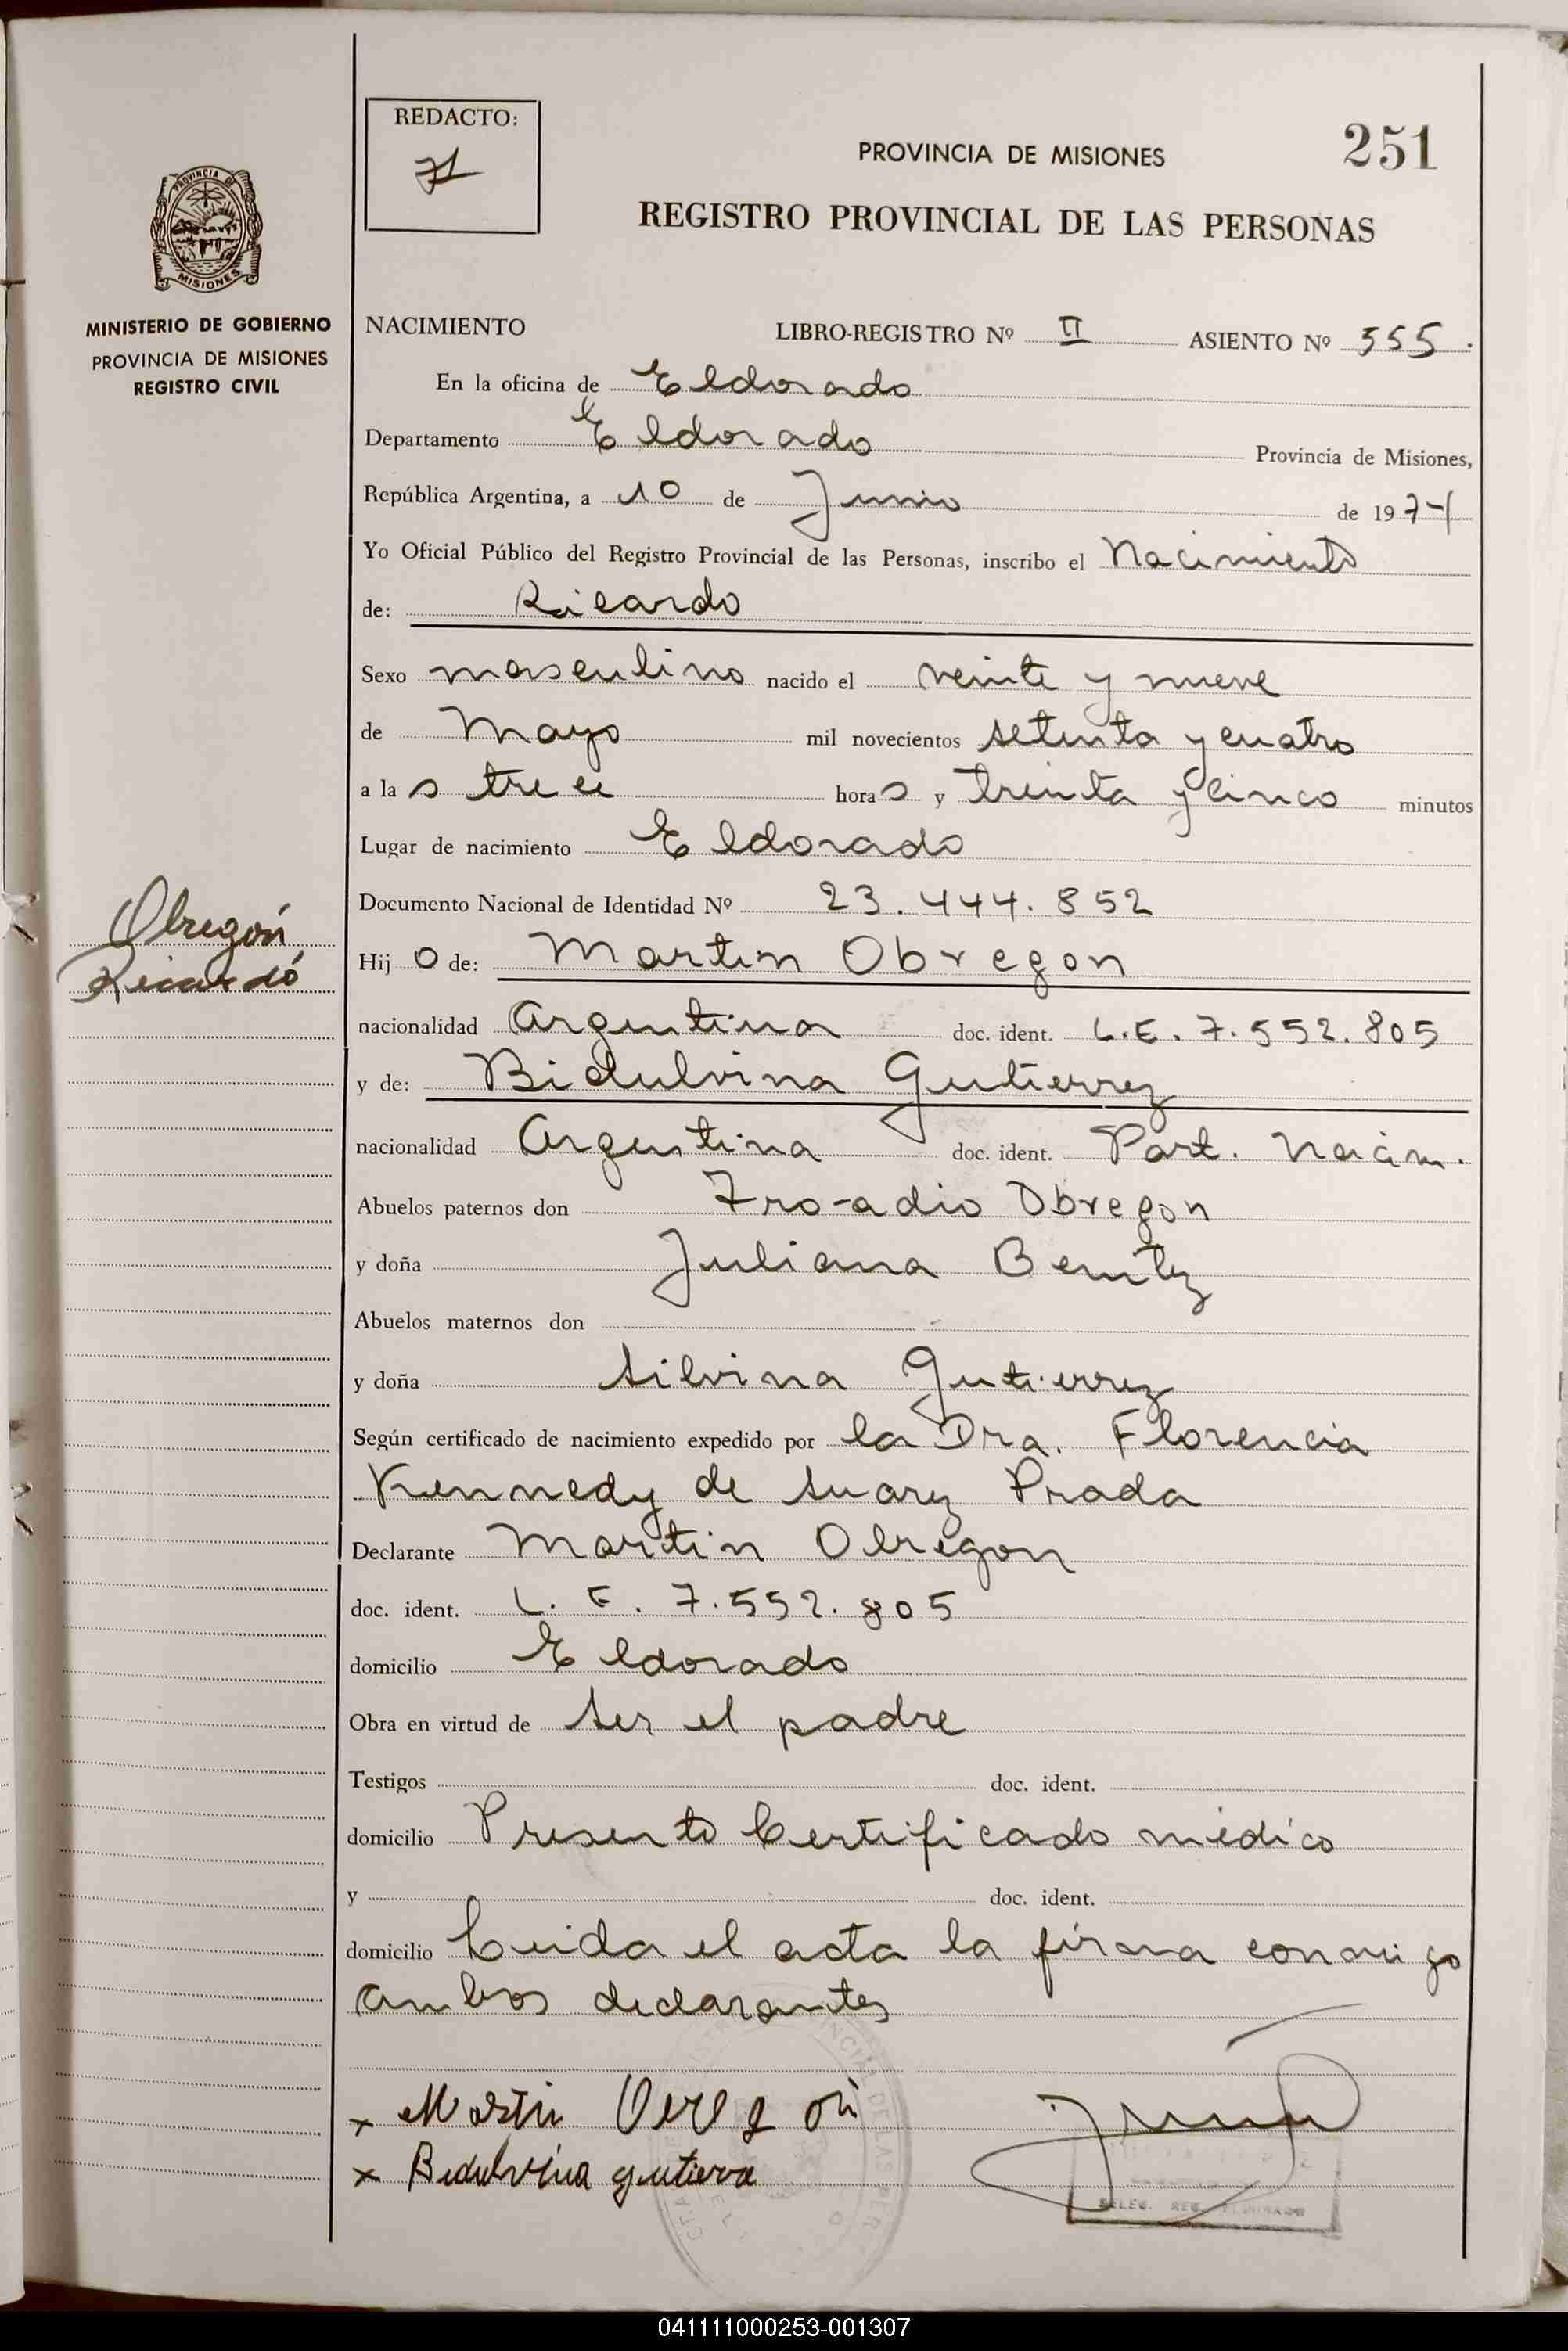 REDACTO:
PROVINCIA DE MISIONES
251
REGISTRO PROVINCIAL DE LAS PERSONAS
PROVINCIA DE
MISIONES
MINISTERIO DE GOBIERNO
PROVINCIA DE MISIONES
REGISTRO CIVIL
NACIMIENTO LIBRO-REGISTRO Nº II ASIENTO Nº 555.
En la oficina de Eldorado
Departamento Eldorado Provincia de Misiones,
República Argentina, a 10 de Junio de 1974
Yo Oficial Público del Registro Provincial de las Personas, inscribo el Nacimiento
de: Ricardo
Sexo masculino nacido el veinte y nueve
de Mayo mil novecientos setenta y cuatro
a las trece horas y treinta y cinco minutos
Lugar de nacimiento Eldorado
Documento Nacional de Identidad Nº 23.444.852
Obregón
Ricardo
Hijo de: Martin Obregon
nacionalidad Argentina doc. ident. L.E. 7.552.805
y de: Bidulvina Gutierrez
nacionalidad Argentina doc. ident. Part. Nacim.
Abuelos paternos don Obregon
y doña Juliana Benitez
Abuelos maternos don
y doña Silvina Gutierrez
Según certificado de nacimiento expedido por la Dra. Florencia
Kennedy de Suarez Prada
Declarante Martin Obregon
doc. ident. L.E. 7.552.805
domicilio Eldorado
Obra en virtud de ser el padre
Testigos doc. ident.
domicilio Presento Certificado médico
y doc. ident.
domicilio Leida el acta la firma conmigo
ambos declarantes
x Martin
x Bidulvina
041111000253-001307